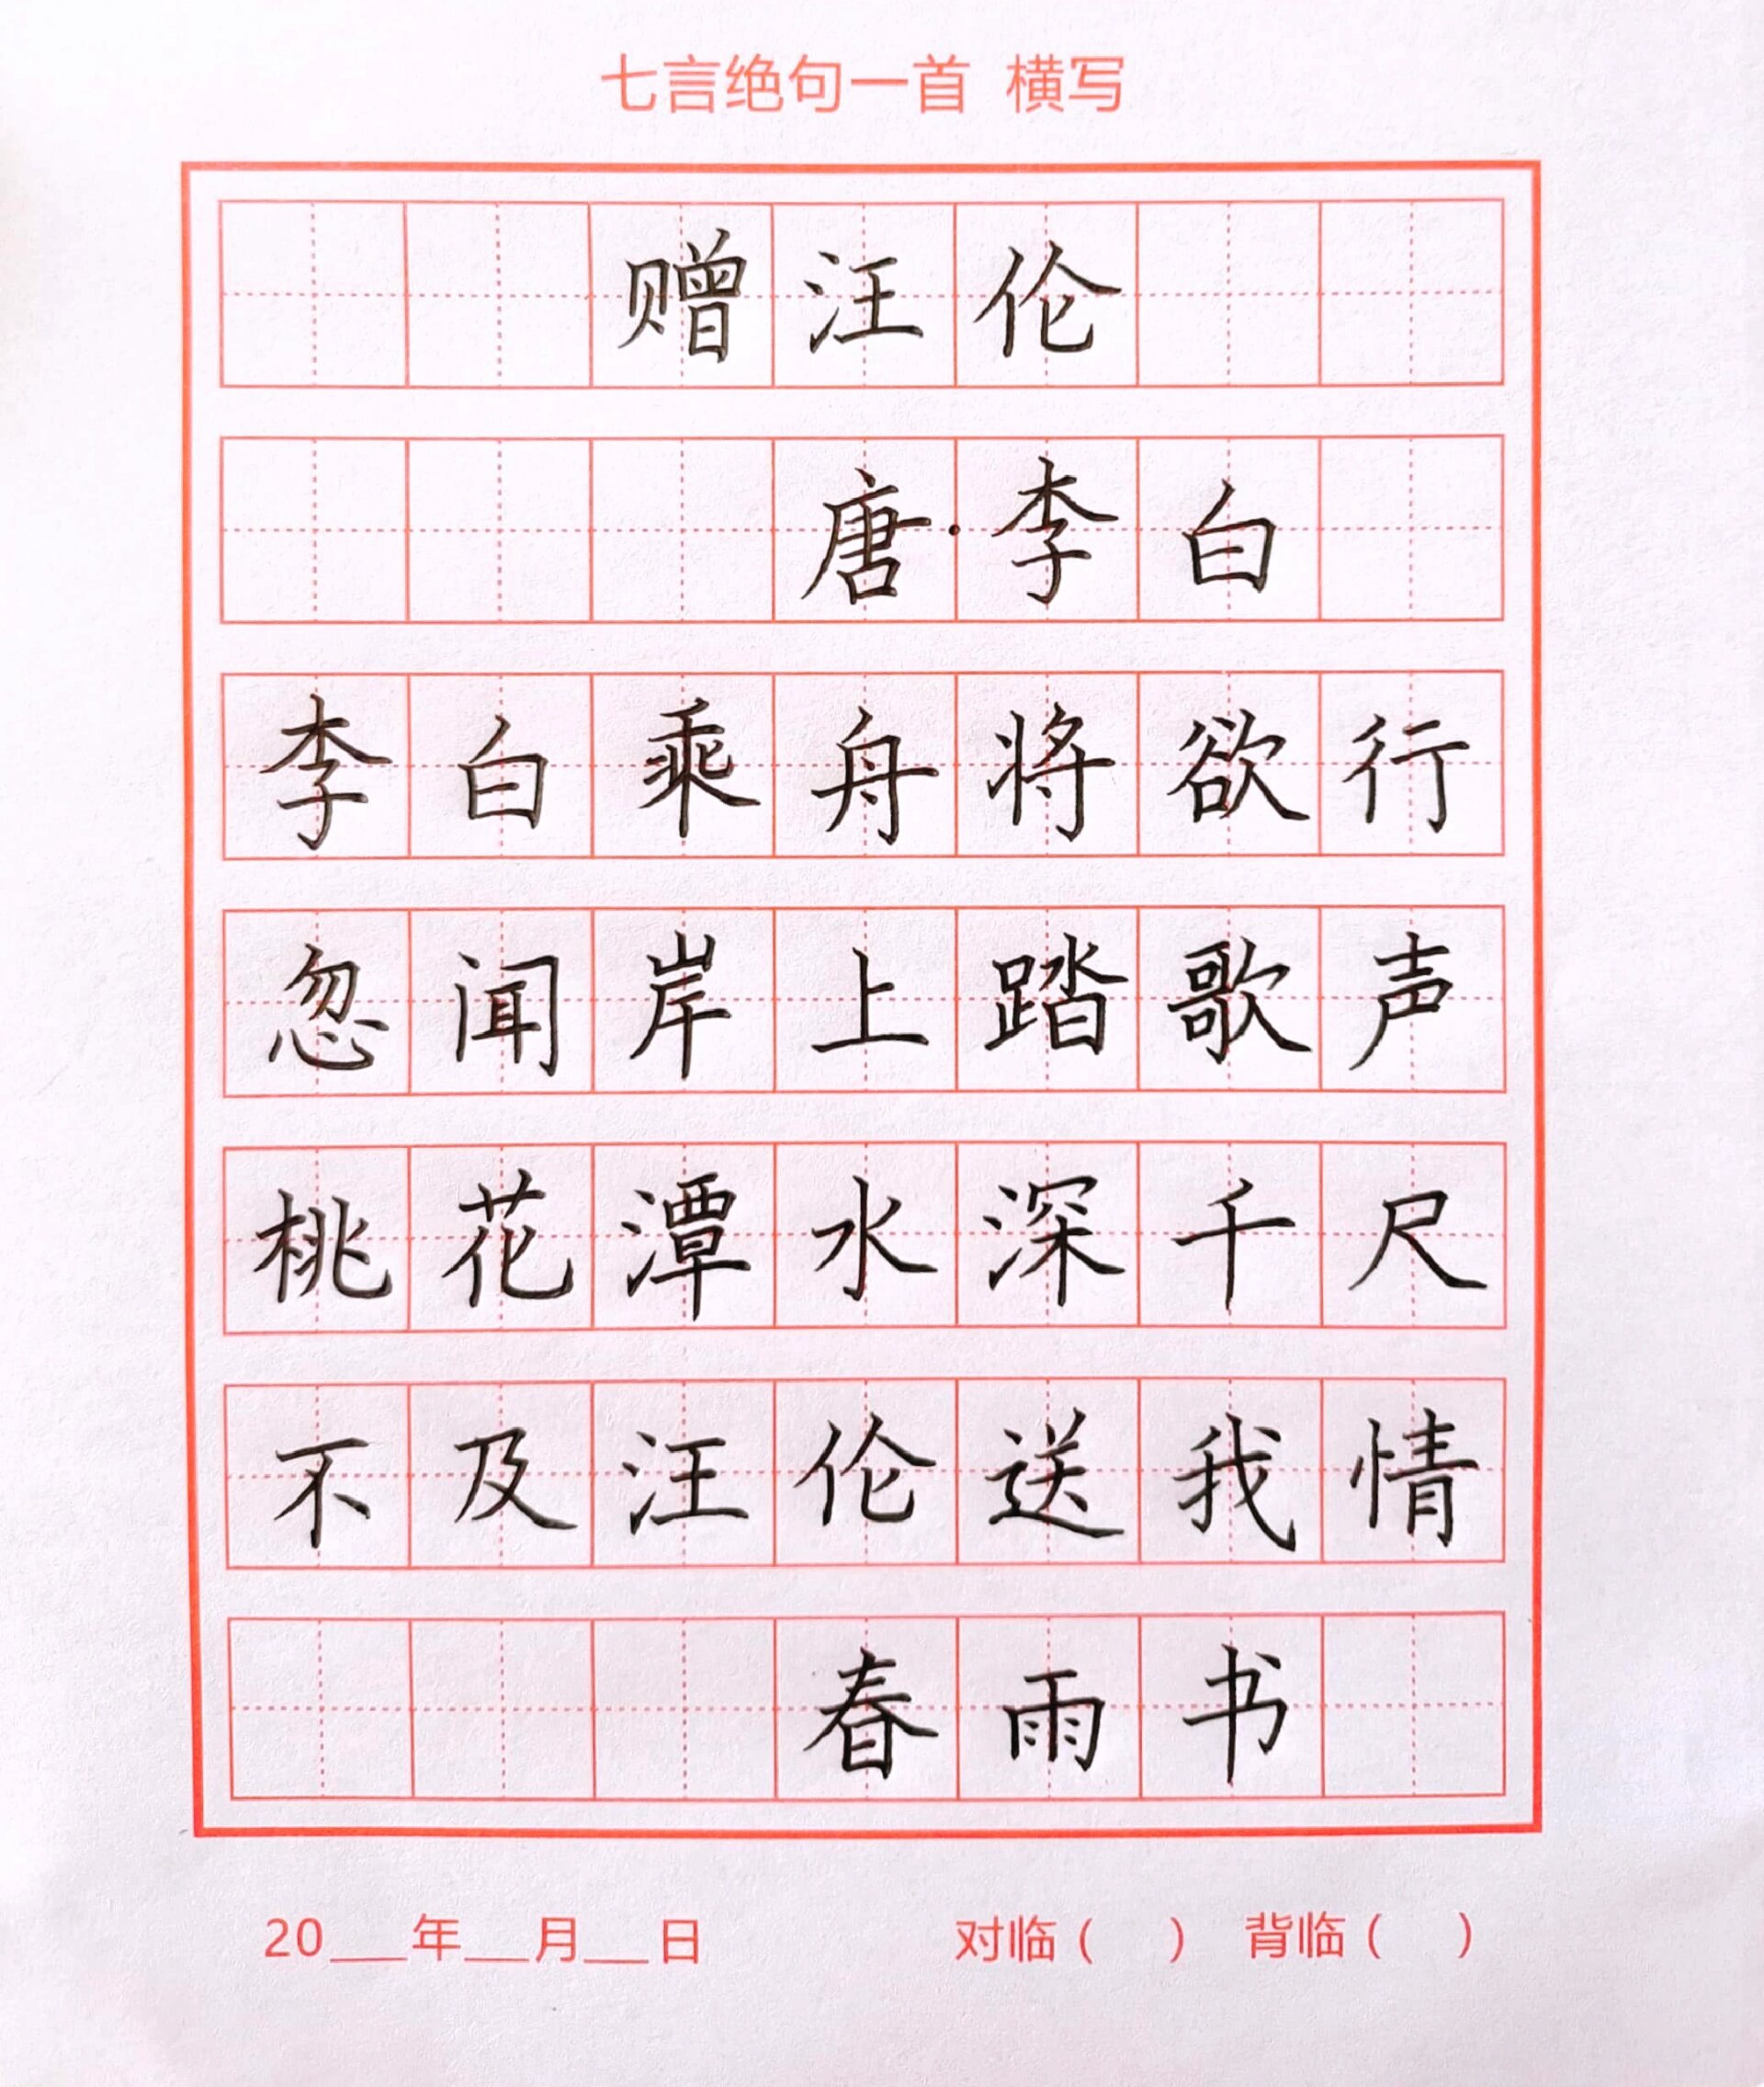 七言绝句一首 横写
赠汪伦
唐·李白
李白乘舟将欲行
忽闻岸上踏歌声
桃花潭水深千尺
不及汪伦送我情
春雨书
20___年___月___日 对临( ) 背临( )